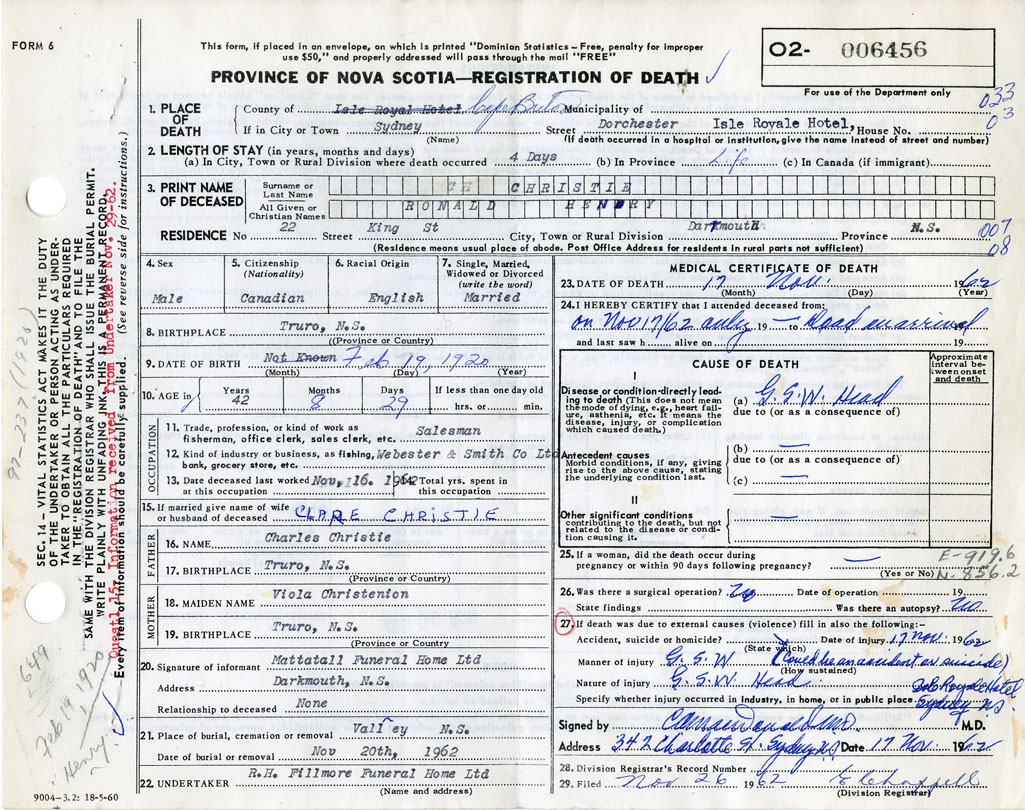 FORM 6
This form, if placed in an envelope, on which is printed "Dominion Statistics – Free, penalty for improper
use $50," and properly addressed will pass through the mail "FREE"
PROVINCE OF NOVA SCOTIA—REGISTRATION OF DEATH
O2- 006456
For use of the Department only
033
03
1. PLACE OF DEATH
County of Isle Royal Hotel Cape Breton Municipality of
If in City or Town Sydney Street Dorchester Isle Royale Hotel, House No.
(Name) (If death occurred in a hospital or institution, give name instead of street and number)
2. LENGTH OF STAY (in years, months and days)
(a) In City, Town or Rural Division where death occurred 4 Days (b) In Province Life (c) In Canada (if immigrant)
3. PRINT NAME OF DECEASED
Surname or Last Name CH CHRISTIE
All Given or Christian Names RONALD HENRY
RESIDENCE No 22 Street King St City, Town or Rural Division Dartmouth Province N.S.
007
08
(Residence means usual place of abode. Post Office Address for residents in rural parts not sufficient)
4. Sex Male
5. Citizenship (Nationality) Canadian
6. Racial Origin English
7. Single, Married, Widowed or Divorced (write the word) Married
8. BIRTHPLACE Truro, N.S.
((Province or Country)
9. DATE OF BIRTH Not Known Feb 19, 1920
(Month) (Day) (Year)
10. AGE in Years 42 Months 8 Days 29 If less than one day old hrs. or min.
OCCUPATION
11. Trade, profession, or kind of work as fisherman, office clerk, sales clerk, etc. Salesman
12. Kind of industry or business, as fishing, bank, grocery store, etc. Webester & Smith Co Ltd
13. Date deceased last worked at this occupation Nov, 16. 1962
14. Total yrs. spent in this occupation
15. If married give name of wife or husband of deceased CLARE CHRISTIE
FATHER
16. NAME Charles Christie
17. BIRTHPLACE Truro, N.S.
(Province or Country)
MOTHER
18. MAIDEN NAME Viola Christenion
19. BIRTHPLACE Truro, N.S.
(Province or Country)
20. Signature of informant Mattatall Funeral Home Ltd
Address Darkmouth, N.S.
Relationship to deceased None
21. Place of burial, cremation or removal Valley N.S.
Date of burial or removal Nov 20th, 1962
22. UNDERTAKER R.H. Fillmore Funeral Home Ltd
(Name and address)
MEDICAL CERTIFICATE OF DEATH
23. DATE OF DEATH 17 Nov. 1962
(Month) (Day) (Year)
24. I HEREBY CERTIFY that I attended deceased from:
on Nov 17/62 only 19 — to Dead on arrival 19
and last saw h alive on 19
CAUSE OF DEATH
Approximate interval between onset and death
I
Disease or condition directly leading to death (This does not mean the mode of dying, e.g., heart failure, asthenia, etc. It means the disease, injury, or complication which caused death.)
(a) G.S.W. Head
due to (or as a consequence of)
Antecedent causes
Morbid conditions, if any, giving rise to the above cause, stating the underlying condition last.
(b) —
due to (or as a consequence of)
(c) —
II
Other significant conditions
contributing to the death, but not related to the disease or condition causing it.
—
25. If a woman, did the death occur during pregnancy or within 90 days following pregnancy? —
(Yes or No)
E-919.6
N-856.2
26. Was there a surgical operation? No Date of operation 19
State findings Was there an autopsy? No
27. If death was due to external causes (violence) fill in also the following:-
Accident, suicide or homicide? Date of injury 17 Nov. 1962
(State which)
Manner of injury G.S.W (Could be an accident or suicide)
(How sustained)
Nature of injury G.S.W Head.
Specify whether injury occurred in industry, in home, or in public place. Isle Royale Hotel Sydney NS
Signed by M.D.
Address 347 Charlotte St. Sydney NS Date 17 Nov. 1962
28. Division Registrar's Record Number
29. Filed Nov 26 1962 E Chappell
(Division Registrar)
SEC. 14—VITAL STATISTICS ACT MAKES IT THE DUTY
OF THE UNDERTAKER OR PERSON ACTING AS UNDER-
TAKER TO OBTAIN ALL THE PARTICULARS REQUIRED
IN THE "REGISTRATION OF DEATH" AND TO FILE THE
SAME WITH THE DIVISION REGISTRAR WHO SHALL ISSUE THE BURIAL PERMIT.
WRITE PLAINLY WITH UNFADING INK—THIS IS A PERMANENT RECORD.
Quest 15. Information received from Undertaker Nov. 29-62.
Every item of information should be carefully supplied. (See reverse side for instructions.)
97-237 (1920)
-649
Feb 19 1920
Henry.
9004-3.2: 18-5-60